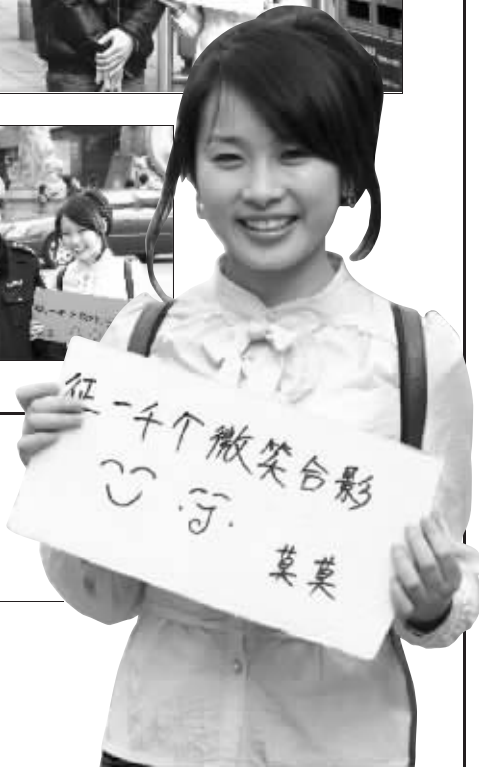 征一千个微笑合影
莫莫